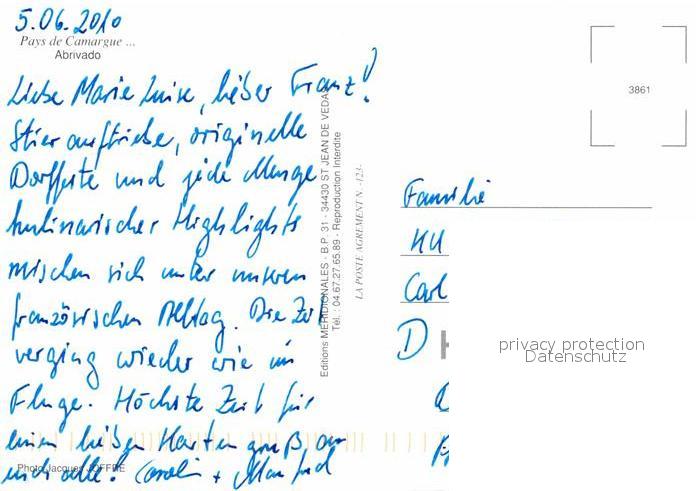 5.06.2010
Pays de Camargue ...
Abrivado
Liebe Marie Luise, lieber Franz!
Stierauftriebe, originelle
Dorffeste und jede Menge
kulinarischer Highlights
mischen sich unter unseren
französischen Alltag. Die Zeit
verging wieder wie im
Fluge. Höchste Zeit für
einen lieben Kartengruß, an
euch alle! Carolin + Manfred
Photo Jacques JOFFRE
Editions MERIDIONALES - B.P. 31 - 34430 ST JEAN DE VEDAS
Tél. : 04.67.27.65.89 - Reproduction Interdite
LA POSTE AGREMENT N. -123-
3861
Familie
Carl
D
privacy protection
Datenschutz